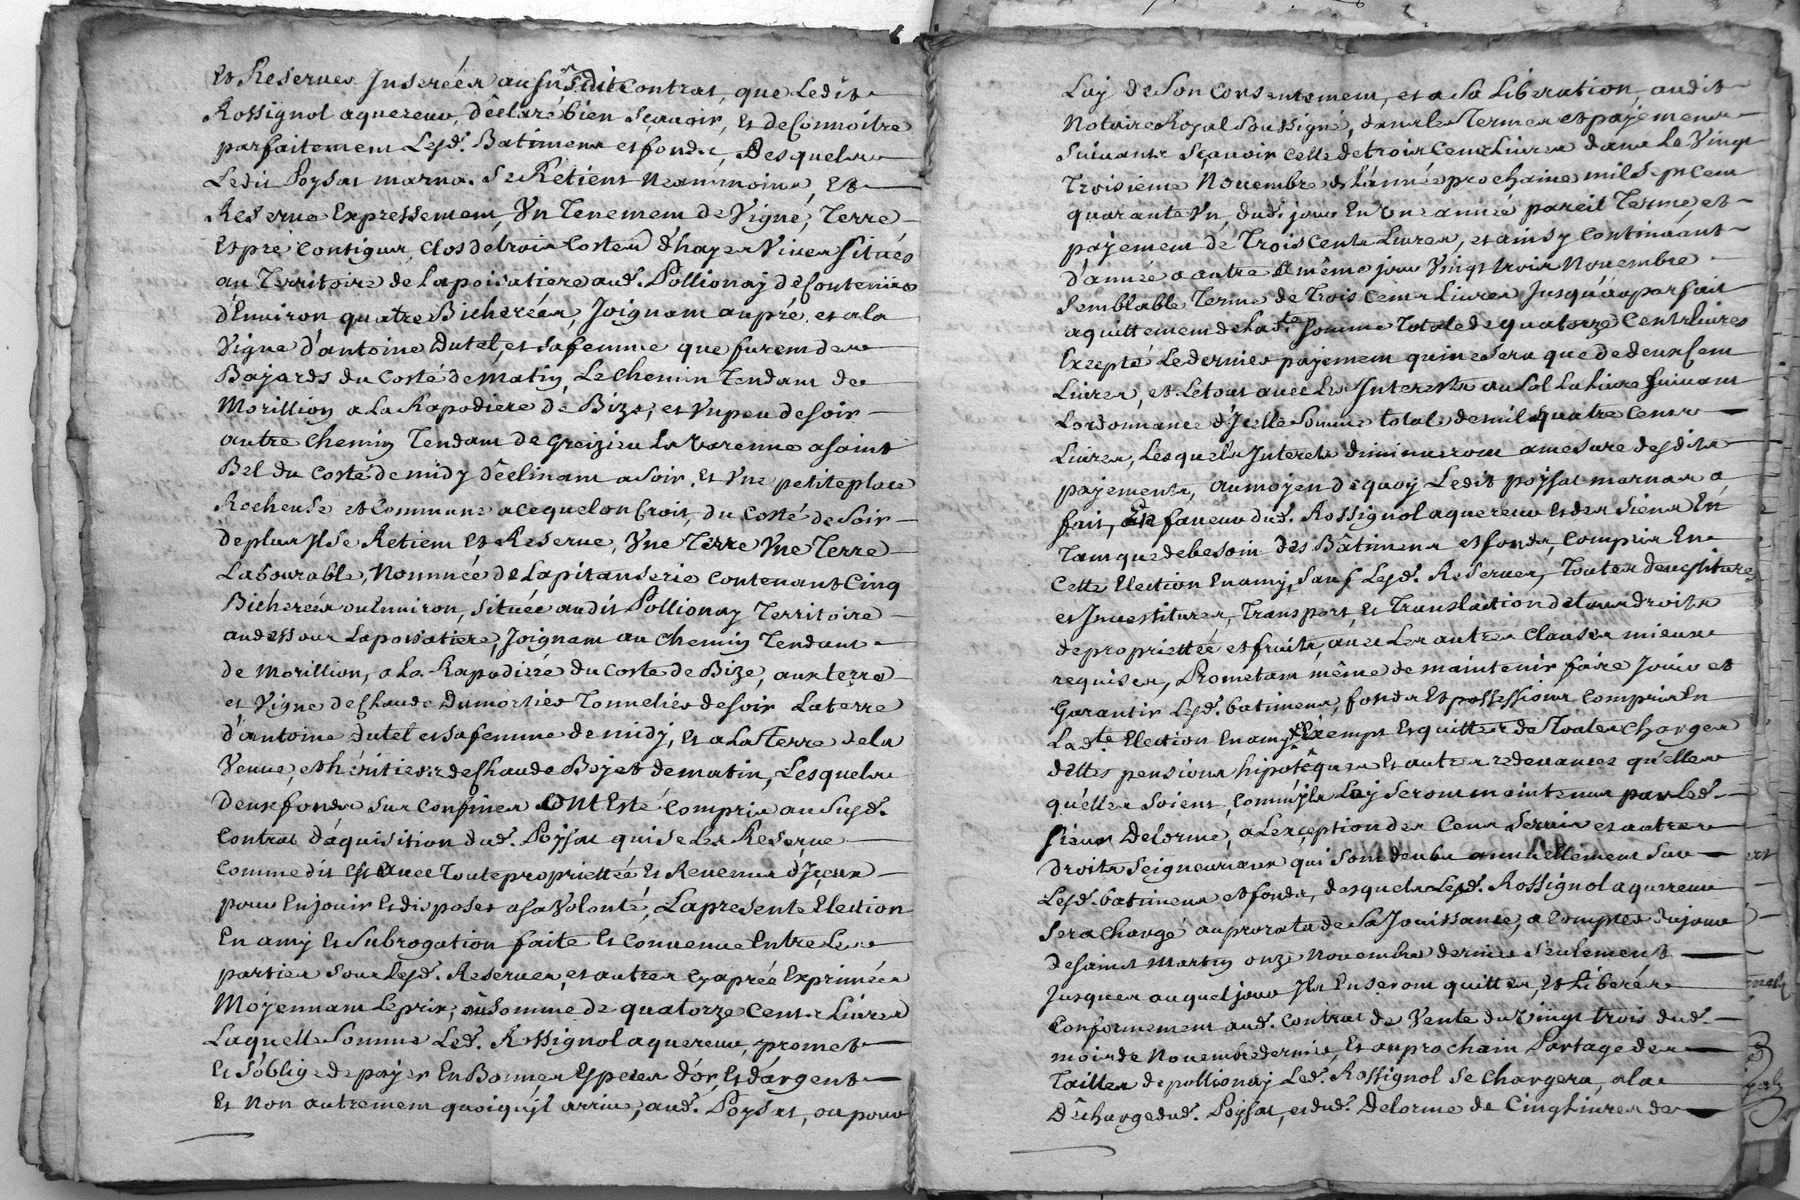 Et Reserves Inserées au susdit Contrat, que Ledit
Rossignol aquereur, dêclaré bien sçavoir, Et de Connoître
parfaitement Lesd. Batimens et fonds, Desquels
Ledit Poysat marna. Se Retient Neammoins, Et
Reserve Expressement, Un Tenement de Vigne, Terre
Et pré Contigus, Clos de trois Costés d'hayes Vives Situés
au Territoire de Lapoisatiere aud. Pollionay de Contenüe
d'Environ quatre Bicherées, Joignam au pré, et a la
Vigne d'antoine Dutel, et sa femme que furent des
Bajards du Costé de Matin, Le Chemin Tendam de
Morillion a La Rapodiere de Bize, et Un peu de soir
autre Chemin Tendam de Greizieu La Varenne a saint
Bel du Costé de midy dêclinant a soir, Et Une petite place
Rocheuse et Commune a ce que lon Croit, du Costé de Soir
de plus Jl se Retient Et Reserve, Une Terre Une Terre
Labourable, Nommée de Lapitanserie Contenant Cinq
Bicherées ou Environ, Située audit Pollionay Territoire
au dessous Lapoisatiere, Joignam au Chemin Tendant
de Morillion, a La Rapodiere du Costé de Bize, aux terre
et Vigne de Claude Dumortier Tonnelier de soir La terre
d'antoine Dutel et sa femme de midy, Et a La Terre de la
Veuve, et héritiers de Claude Bojet de matin, Lesquels
deux fonds sur Confines ont Esté Compris au Susd.
Contrat d'aquisition dud. Poysat qui se Les Reserve
Comme dit Est avec Toute proprietteé Et Revenus d'Jceux
pour En jouir Et disposer a sa Volonté, La presente Election
En amy Et Subrogation faite Et Convenue Entre Les
parties Sous Lesd. Reserves, et autres Cy aprés Exprimées
Moyennam Le prix, ou Somme de quatorze Cents Livres
Laquelle Somme Led. Rossignol aquereur, promet
Et s'oblige de payer En Bonnes Especes d'or, Et d'argent
Et Non autrement quoiqu'jl arrive, aud. Poysat, ou pour
Luy de Son Consentement, et a Sa Liberation, audit
Notaire Royal Soussigné, dans les Termes et payemens
Suivants Sçavoir Celle de trois Cents Livres dans Le Vingt
Troisieme Novembre de L'année prochaine mil sept Cent
quarante Un, dud. jour En Une année pareil Terme, et
payement de Trois Cents Livres, et ainsy Continüant
d'année a autre a même jour Vingt trois Novembre
Semblable Terme de Trois Cents Livres Jusqu'au parfait
aquittement de Lad.te Somme Totale de quatorze Cents livres
Excepté Le dernier payement qui ne sera que de deux Cent
Livres, et Le tout avec Les Interests au Sol La Livre Suivant
Lordonnance d'Jcelle Somme total de mil quatre Cents
Livres, Lesquels Interets diminueront a mesure desdits
payements, au moyen de quoy Ledit poysat marnas a
fait, En faveur dud. Rossignol aquereur et des Siens En
Tant que de besoin des Bâtimens et fonds, Compris En
Cette Election En amy, Sauf Lesd. Reserves, Toutes devestitures
et Investitures, Transport, Et Translaction de tous droits
de proprietteé et fruits, avec Les autres Clauses mieux
requises, Prometam même de maintenir faire Jouir et
Garantir Lesd. batimens, fonds Et possessions Compris En
Lad.te Election En amy, Exempt Et quitter de Toutes Charges
dettes pensions hipotêques Et autres redevances qu'elles
qu'elles soient, Comm'jls Luy seront maintenus par Led.
Sieur Delorme, a L'exception des Cens Servis et autres
droits Seigneuriaux qui sont deubs annuellement Sur
Lesd. batimens et fonds, desquels Led. Rossignol aquereur
sera Chargé au prorata de Sa Jouissance, a Compter du jour
de saint Martin onze Novembre dernier Seulement
Jusques auquel jour Jls En seront quittes, Et Liberés
Conformement aud. Contrat de Vente du Vingt trois dud.
mois de Novembre dernier, Et au prochain Partage des
Tailles de pollionay Led. Rossignol Se Chargera, a la
Dêcharge dud. Poysat, et dud. Delorme de Cinq Livres de